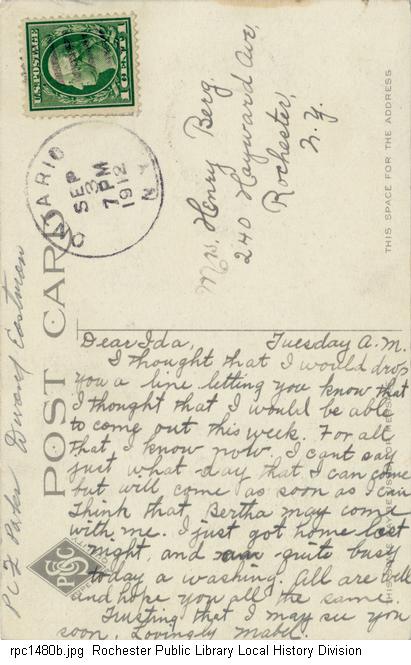 U.S. POSTAGE
1 CENT 1
ONTARIO
SEP
3
7 PM
1912
N.Y.
Mrs. Henry Berg.
240 Hayward Ave.
Rochester,
N.Y.
THIS SPACE FOR THE ADDRESS
POST CARD
Dear Ida, Tuesday A.M.
I thought that I would drop
you a line letting you know that
I thought that I would be able
to come out this week. For all
that I know now, I cant say
just what day that I can come
but will come as soon as I can
Think that Bertha may come
with me. I just got home last
night, and am quite busy
today a washing. All are well
and hope you all the same.
Trusting that I may see you
soon, Lovingly Mabel.
Eastman
rpc1480b.jpg Rochester Public Library Local History Division